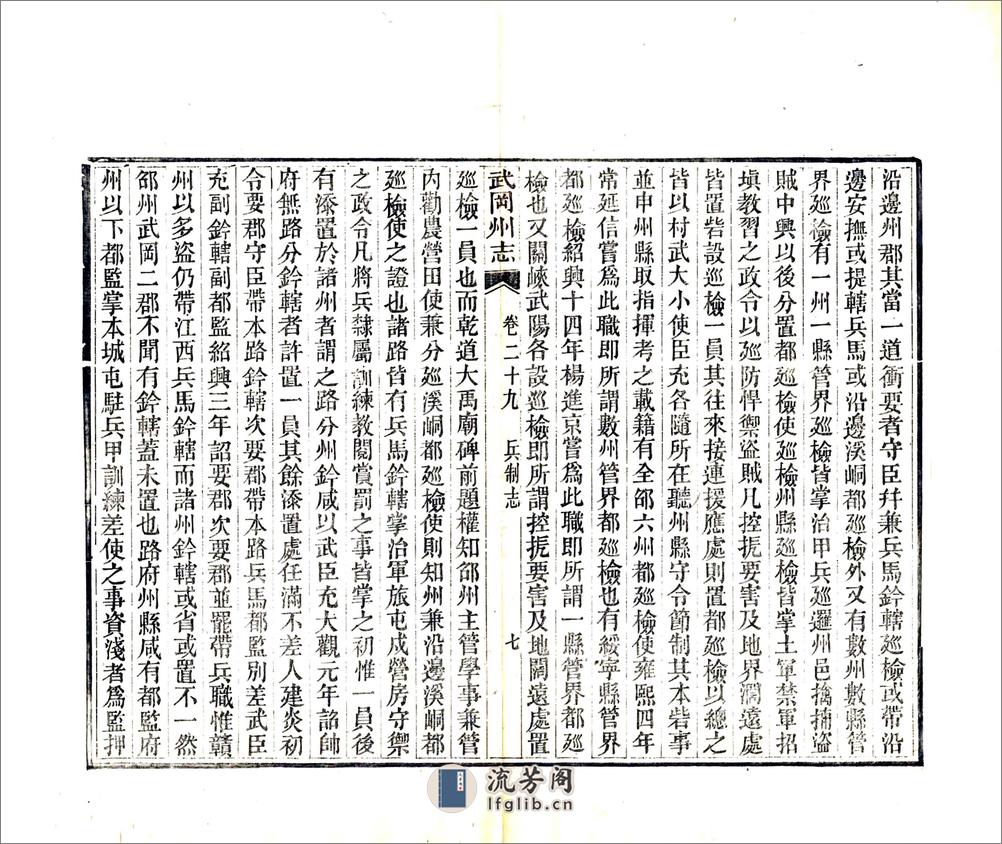 沿邊州郡其當一道衝要者守臣幷兼兵馬鈐轄廵檢或帶沿
邊安撫或提轄兵馬或沿邊溪峒都廵檢外又有數州數縣管
界廵檢有一州一縣管界廵檢皆掌治甲兵廵邏州邑擒捕盜
賊中興以後分置都廵檢使廵檢州縣廵檢皆掌土軍禁軍招
塡教習之政令以廵防悍禦盜賊凡控扼要害及地界濶遠處
皆置砦設巡檢一員其往來接連援應處則置都廵檢以總之
皆以材武大小使臣充各隨所在聽州縣守令節制其本砦事
並申州縣取指揮考之載籍有全邵六州都廵檢使雍熙四年
常延信嘗爲此職即所謂數州管界都廵檢也有綏寧縣管界
都廵檢紹興十四年楊進京嘗爲此職即所謂一縣管界都廵
檢也又關峽武陽各設巡檢即所謂控扼要害及地闊遠處置
武岡州志
卷二十九
兵制志
七
廵檢一員也而乾道大禹廟碑前題權知邵州主管學事兼管
內勸農營田使兼分廵溪峒都廵檢使則知州兼沿邊溪峒都
廵檢使之證也諸路皆有兵馬鈐轄掌治軍旅屯戍營房守禦
之政令凡將兵隸屬訓練教閱賞罰之事皆掌之初惟一員後
有添置於諸州者謂之路分州鈐咸以武臣充大觀元年詔帥
府無路分鈐轄者許置一員其餘添置處任滿不差人建炎初
令要郡守臣帶本路鈐轄次要郡帶本路兵馬都監別差武臣
充副鈐轄副都監紹興三年詔要郡次要郡並罷帶兵職惟贛
州以多盜仍帶江西兵馬鈐轄而諸州鈐轄或省或置不一然
邵州武岡二郡不聞有鈐轄蓋未置也路府州縣咸有都監府
州以下都監掌本城屯駐兵甲訓練差使之事資淺者爲監押
流芳阁
lfglib.cn